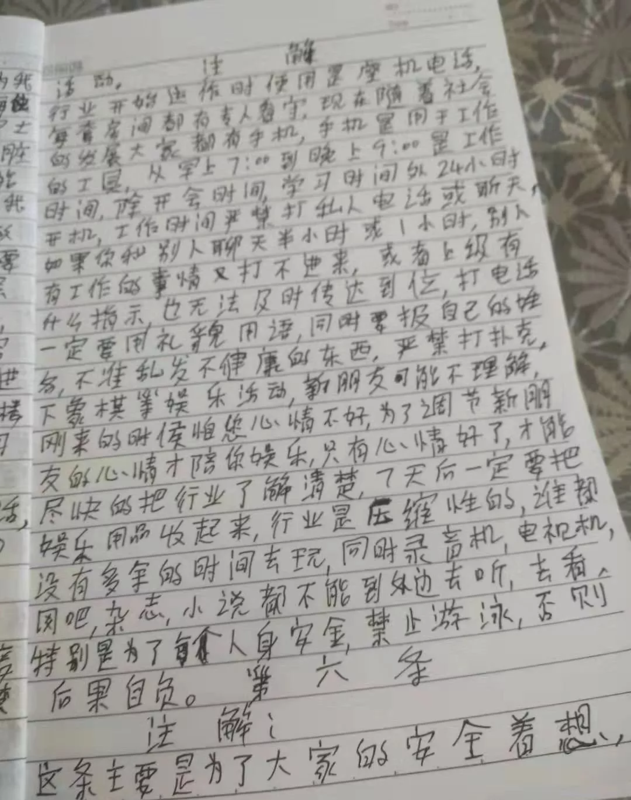 活动。 注 解
行业开始运作时使用是座机电话,
每套房间都有专人看守,现在随着社会
的发展大家都有手机,手机是用于工作
的工具,从早上7:00到晚上9:00是工作
时间,除开会时间,学习时间外24小时
开机,工作时间严禁打私人电话或聊天,
如果你和别人聊天半小时或1小时,别人
有工作的事情又打不进来,或者上级有
什么指示,也无法及时传达到位,打电话
一定要用礼貌用语,同时要报自己的姓
名,不准乱发不健康的东西,严禁打扑克,
下象棋等娱乐活动,新朋友可能不理解,
刚来的时侯怕您心情不好,为了调节新朋
友的心情才陪你娱乐,只有心情好了,才能
尽快的把行业了解清楚,7天后一定要把
娱乐用品收起来,行业是压缩性的,谁都
没有多余的时间去玩,同时录音机,电视机,
网吧,杂志,小说都不能到外边去听,去看,
特别是为了每个人身安全,禁止游泳,否则
后果自负。 第 六 条
注 解:
这条主要是为了大家的安全着想,